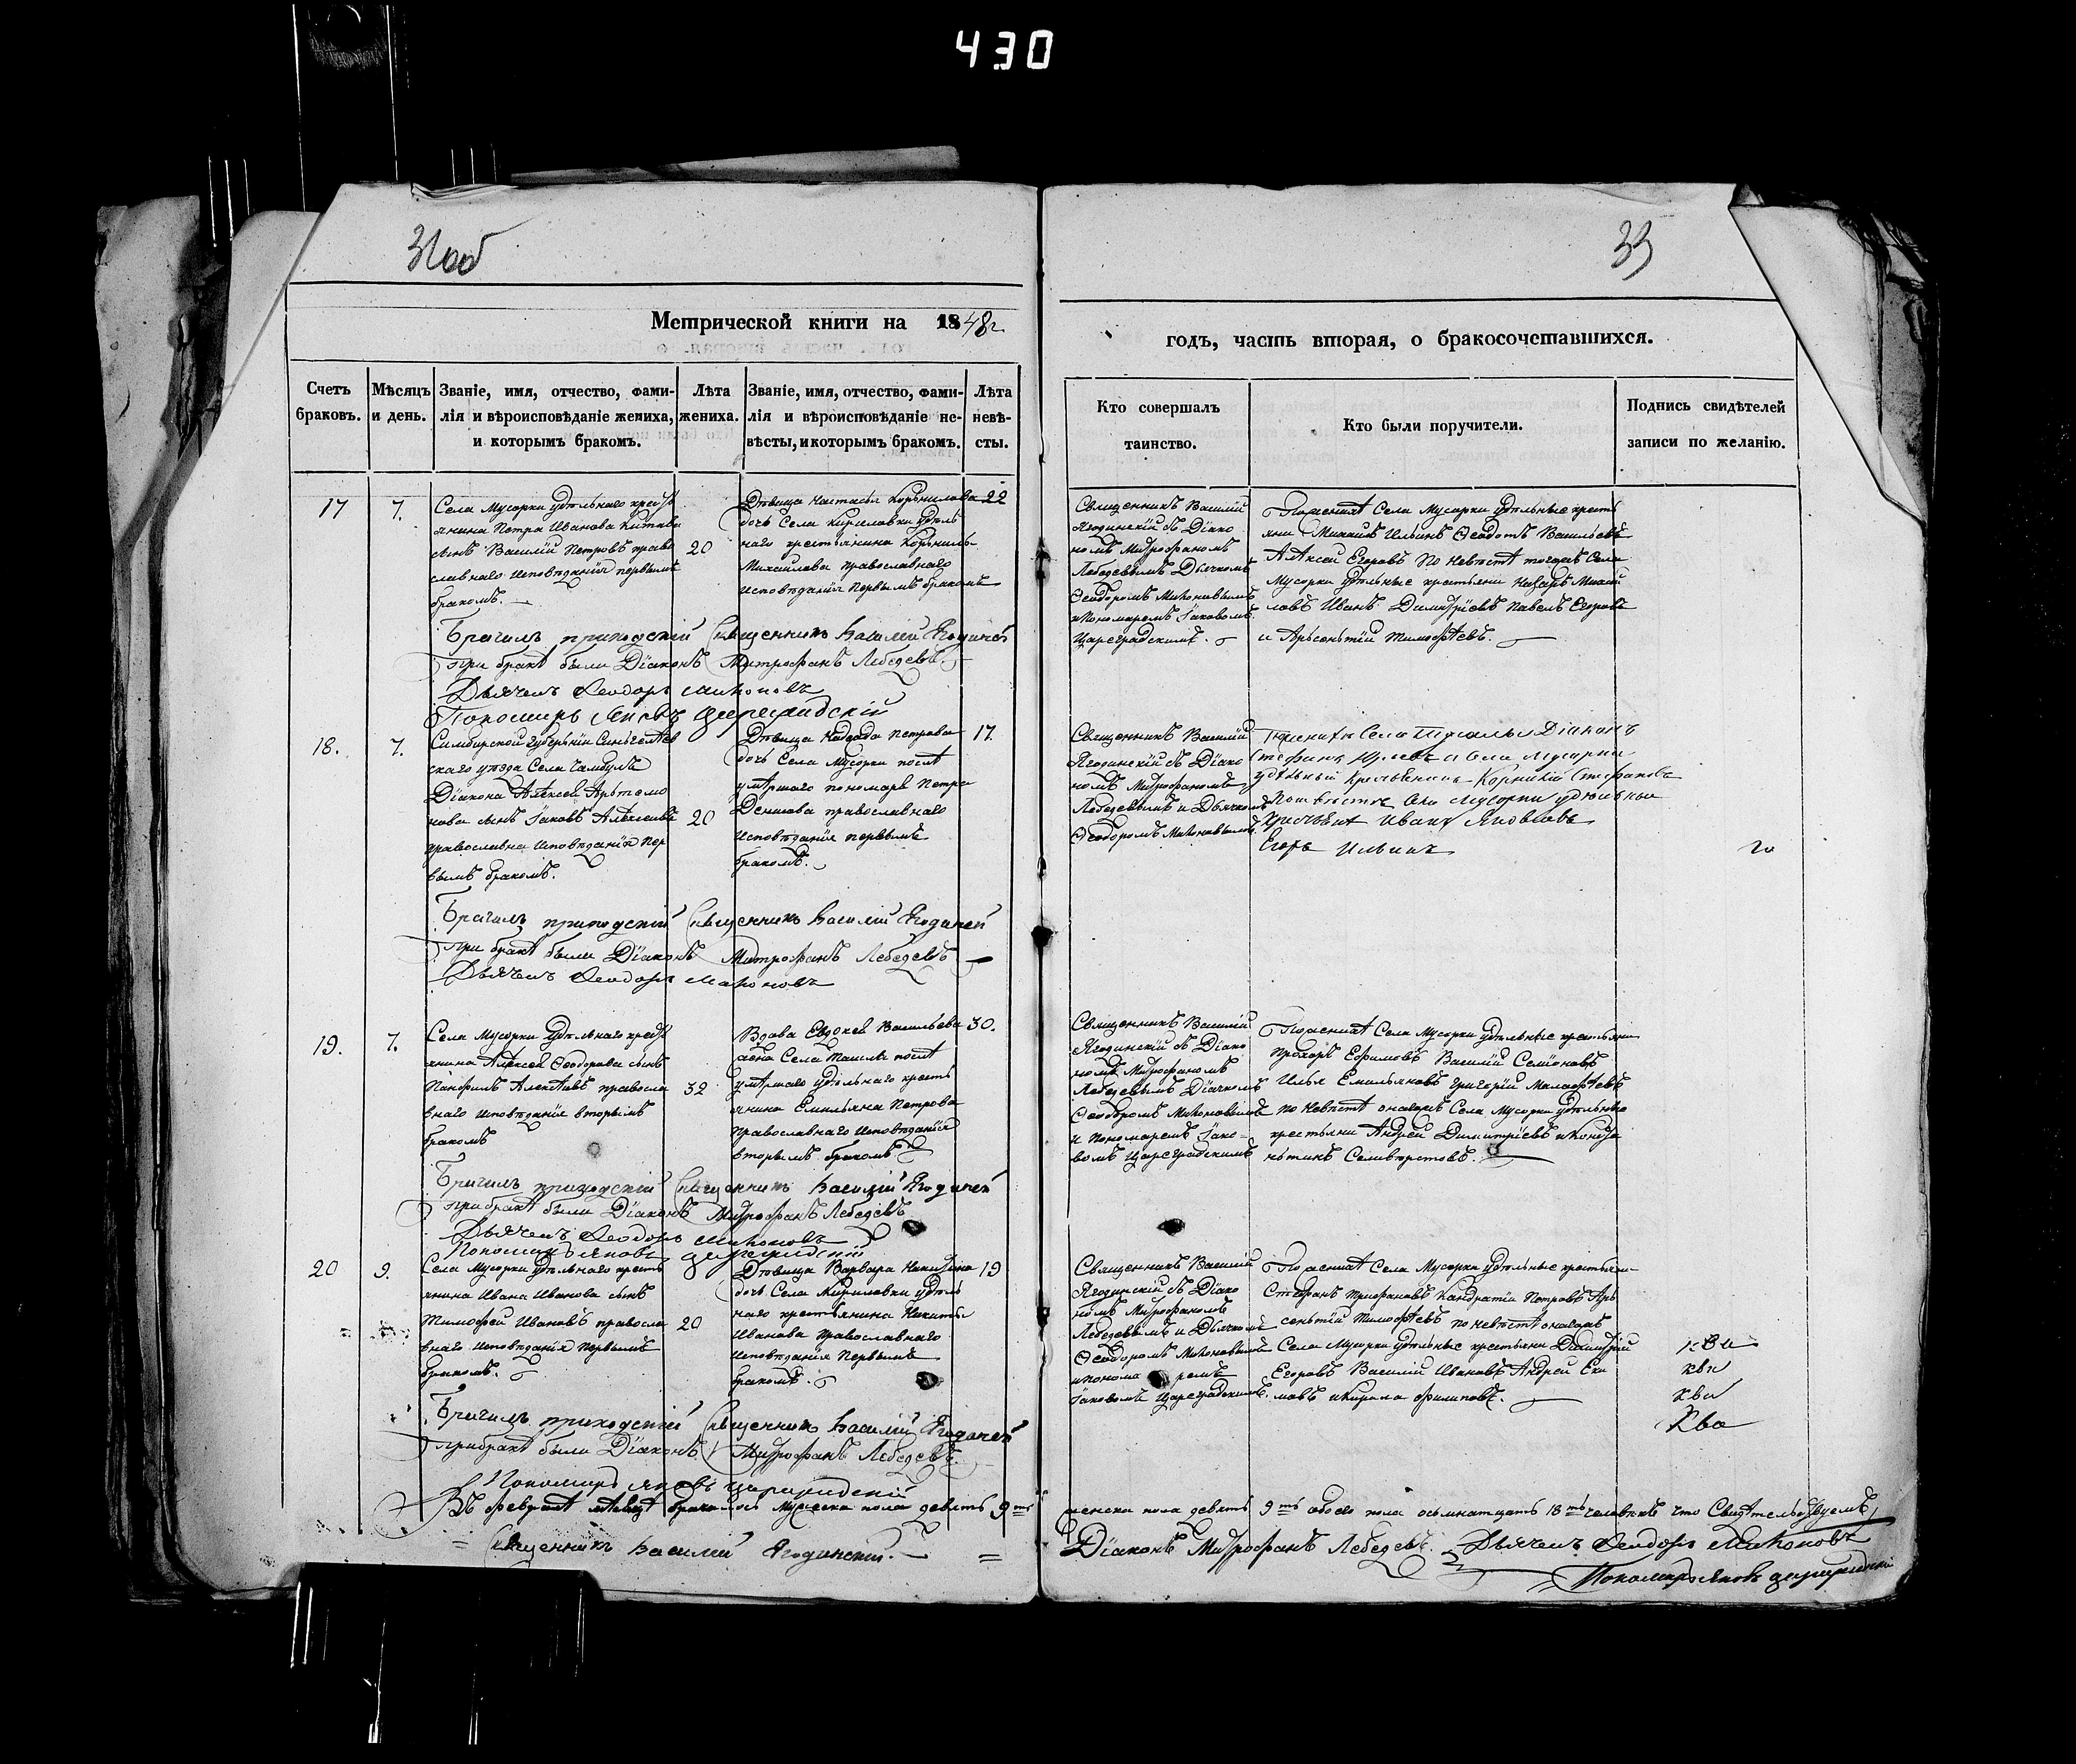 430
33
Метрической книги на 1848г
годъ, часть вторая, о бракосочетавшихся.
Счетъ браковъ.
Мѣсяцъ и день.
Званіе, имя, отчество, фами-
лія и вѣроисповѣданіе жениха,
и которымъ бракомъ.
Лѣта
жениха.
Званіе, имя, отчество, фами-
лія и вѣроисповѣданіе не-
вѣсты, и которымъ бракомъ.
Лѣта
невѣ-
сты.
Кто совершалъ
таинство.
Кто были поручители.
Поднись свидѣтелей
записи по желанію.
17
7.
Села Мусорки удѣльнаго кресть
янина Петра Иванова
сынъ Василій Петровъ право
славнаго исповѣданія первымъ
бракомъ.
20
Дѣвица Настасья Корнилова
дочь Села Кириловки удѣль
наго крестьянина Корнила
Михайлова православнаго
исповѣданія первымъ бракомъ
22
Священникъ Василій
Ягодинскій съ Діако
номъ Митрофаномъ
Лебедевымъ Дьячкомъ
Ѳеодоромъ Милоновымъ
и Пономаремъ Іаковомъ
Цареградскимъ.
По женихѣ Села Мусорки удѣльные кресть
яни Михаилъ Ильинъ Ѳеодотъ Васильевъ
Алѣксей Егоровъ по невѣстѣ тогожъ Села
Мусорки удѣльные крестьяни Назаръ Михай
ловъ Иванъ Димитріевъ Павелъ Егоровъ
и Арсентій Тимофѣевъ.
Бракъ приходскій Священникъ Василій Ягодинск
При бракѣ были Діаконъ Митрофанъ Лебедевъ.
Дьячекъ Ѳеодоръ Милоновъ
Пономарь Яковъ Цареградскій
18.
7.
Симбирской Губерніи Сингелѣев
скаго уѣзда Села
Діакона Алѣксея Артемо
нова сынъ Іаковъ Алѣксеевъ
православна исповѣданія пер
вымъ бракомъ.
20
Дѣвица Надежда Петрова
дочь Села Мусорки послѣ
умѣршаго пономаря Петра
Денисова православнаго
исповѣданія первымъ
бракомъ.
17.
Священникъ Василій
Ягодинскій съ Діако
номъ Митрофаномъ
Лебедевымъ и Дьячкомъ
Ѳеодоромъ Милоновымъ.
По женихѣ Села Діаконъ
Стефанъ и Села Мусорки
удѣльный Крестьянинъ Корнилій Стефановъ
По невѣстѣ Села Мусорки удѣльные
Крестьяне Иванъ Яковлевъ
Егоръ Ильинъ
Приходскій Священникъ Василій Ягодинск
При бракѣ были Діаконъ Митрофанъ Лебедевъ
Дьячекъ Ѳеодоръ Милоновъ
19.
7.
Села Мусорки удѣльнаго кресть
янина Алѣксея Ѳеодорова сынъ
Панфилъ Алексѣевъ правосла
внаго исповѣданія вторымъ
бракомъ
32
Вдова Евдокея Васильева
Села послѣ
умѣршаго удѣльнаго кресть
янина Емильяна Петрова
православнаго исповѣданія
вторымъ бракомъ
30.
Священникъ Василій
Ягодинскій съ Діако
номъ Митрофаномъ
Лебедевымъ Діачкомъ
Ѳеодоромъ Милоновымъ
и пономаремъ Іако
вомъ Цареградскимъ
По женихѣ Села Мусорки удѣльные крестьяни
Прохоръ Ефимовъ Василій Семіоновъ
Илья Емильяновъ Григорій
по невѣстѣ Села Мусорки удѣльные
крестьяни Андрей Димитріевъ и Конста
нтинъ Селиверстовъ.
Приходскій Священникъ Василій Ягодинск
При бракѣ были Діаконъ Митрофанъ Лебедевъ
Дьячекъ Ѳеодоръ Милоновъ
Пономарь Яковъ Цареградскій
20
9.
Села Мусорки удѣльнаго кресть
янина Ивана Иванова сынъ
Тимофей Ивановъ правосла
внаго исповѣданія первымъ
бракомъ.
20
Дѣвица Варвара Никитина
дочь Села Кириловки удѣль
наго крестьянина Никиты
Иванова православнаго
исповѣданія первымъ
бракомъ.
19
Священникъ Василій
Ягодинскій съ Діако
номъ Митрофаномъ
Лебедевымъ и Дьячкомъ
Ѳеодоромъ Милоновымъ
и понома ремъ
Іаковомъ Цареградскимъ.
По женихѣ Села Мусорки удѣльные крестьяни
Стефанъ Трифановъ Кандратій Петровъ Ар
сентій Тимофѣевъ по невѣстѣ
Села Мусорки удѣльные крестьяни Димитрій
Егоровъ Василій Ивановъ Андрей
и Кирила Филиповъ.
Приходскій Священникъ Василій Ягодинск
При бракѣ были Діаконъ Митрофанъ Лебедевъ.
Пономарь Яковъ Цареградскій
Въ февралѣ мѣсяцѣ мужеска пола девять 9ть
женска пола девять 9ть обоего пола осьмнатцать 18ть человѣкъ что Свидѣтельствуемъ
Священникъ Василій Ягодинскій.
Діаконъ Митрофанъ Лебедевъ. Дьячекъ Ѳеодоръ Милоновъ
Пономарь Яковъ Цареградскій